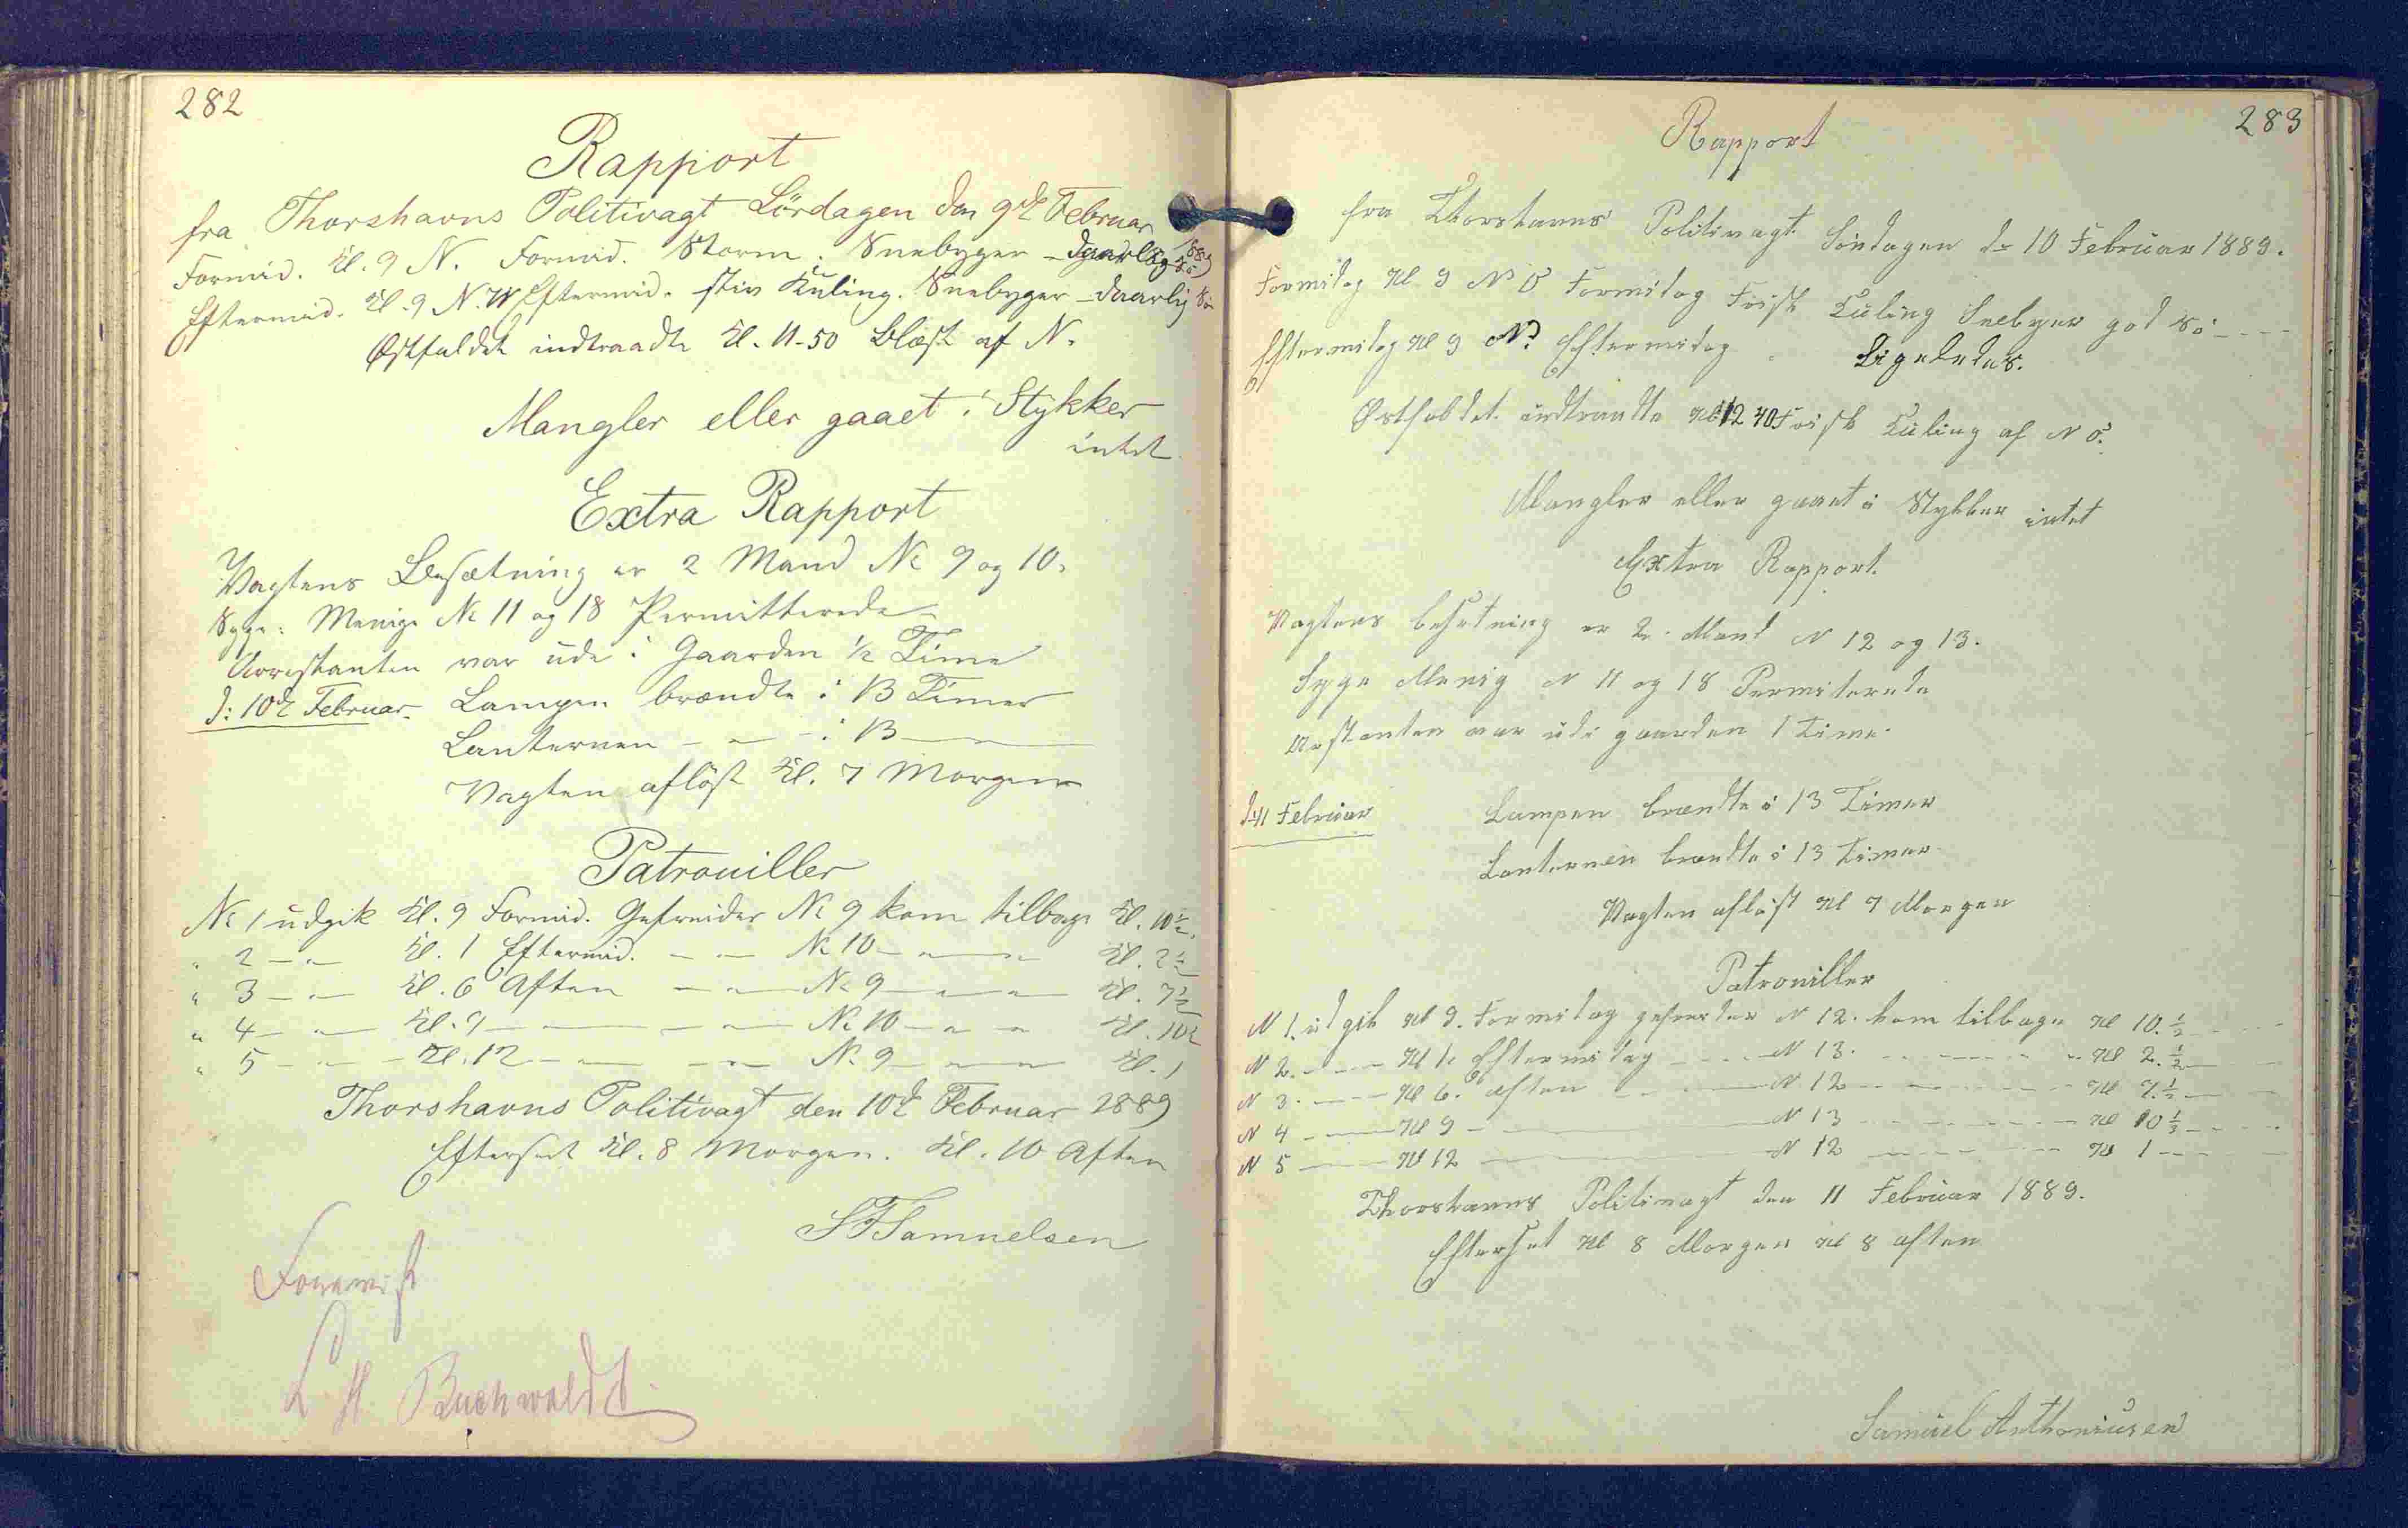 282
Rapport
fra Thorshavns Politivagt Lördagen den 9de Februar 1889
Formid. Kl. 9 N. Formid. Storm. Snebyger - daarlig Sö
Eftermid. Kl. 9 N.W Eftermid. stiv Kuling. Snebyger - daarlig Sö
Østfaldet indtraadte Kl. 11-50 Blæst af N.
Mangler eller gaaet i Stykker
intet
Extra Rapport
Vagtens Besætning er 2 Mand No 9 og 10.
Syge: Menige No 11 og 18 Permitterede
Arrestanten var ude i Gaarden 1/2 Time
d: 10de Februar. Lampen brændte i 13 Timer
Lanternen - - - i 13 - -
Vagten aflöst Kl. 7 Morgen
Patrouiller
No 1 udgik Kl. 9 Formid. Gefreider No 9 kom tilbage Kl. 10 1/2.
" 2 - - Kl. 1 Eftermid. - - No 10 - - - Kl. 2 1/2
" 3 - - Kl. 6 Aften - - No 9 - - - Kl. 7 1/2
" 4 - - Kl. 9 - - - No 10 - - - Kl. 10 1/2
" 5 - - Kl. 12 - - - No 9 - - - Kl. 1
Thorshavns Politivagt den 10de Februar 1889
Efterset Kl. 8 Morgen. Kl. 10 Aften
SFSamuelsen
Forevist
H Buchwaldt
283
Rapport
fra Thorshavns Politivagt. Söndagen d 10 Februar 1889.
Formidag Kl 9 N O Formidag Frisk Kuling Snebyer god Sö - - -
Eftermidag Kl 9 N. Eftermidag . Ligeledes.
Østfaldet indtraadte Kl 12 40 Frisk Kuling af N O.
Mangler eller gaaet i Stykker intet
Extra Rapport.
Vagtens besetning er 2. Mand N 12 og 13.
Syge Menig N 11 og 18 Permiterede
Arstanten var udi gaarden 1 Time.
d. 11 Februar Lampen brændte i 13 Timer
Lanternen brændte i 13 Timer
Vagten aflöst Kl 7 Morgen
Patrouiller
N 1. udgik Kl 9. Formidag gefreider N 12. kom tilbage Kl 10. 1/2 - - -
N 2. - - - Kl 1. Eftermidag - - - N 13. - - - Kl 2. 1/2 -
N 3. - - - Kl 6. aften - - N 12 - - - Kl 7. 1/2 -
N 4 - - - Kl 9 - - - N 13 - - - Kl 10 1/2 - - -
N 5 - - - Kl 12 - - - N 12 - - - Kl 1 - - -
Thorshavns Politivagt den 11 Februar 1889.
Efterset Kl 8 Morgen Kl 8 aften
Samuel Anthoniusen